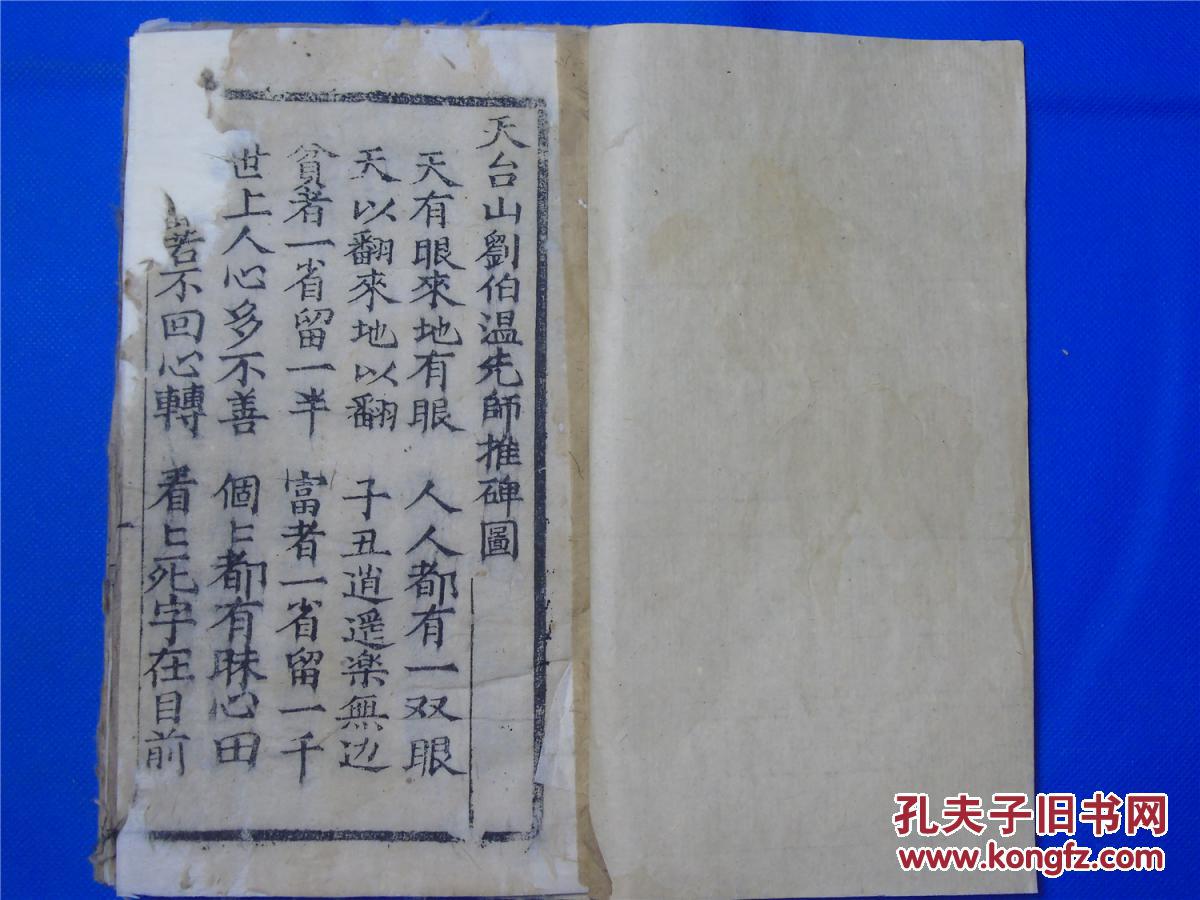 天台山劉伯温先師推碑圖
天有眼來地有眼 人人都有一双眼
天以翻來地以翻 子丑逍遥楽無边
貧者一省留一半 富者一省留一千
世上人心多不善 個上都有昧心田
若不回心轉 看上死字在目前
孔夫子旧书网
www.kongfz.com